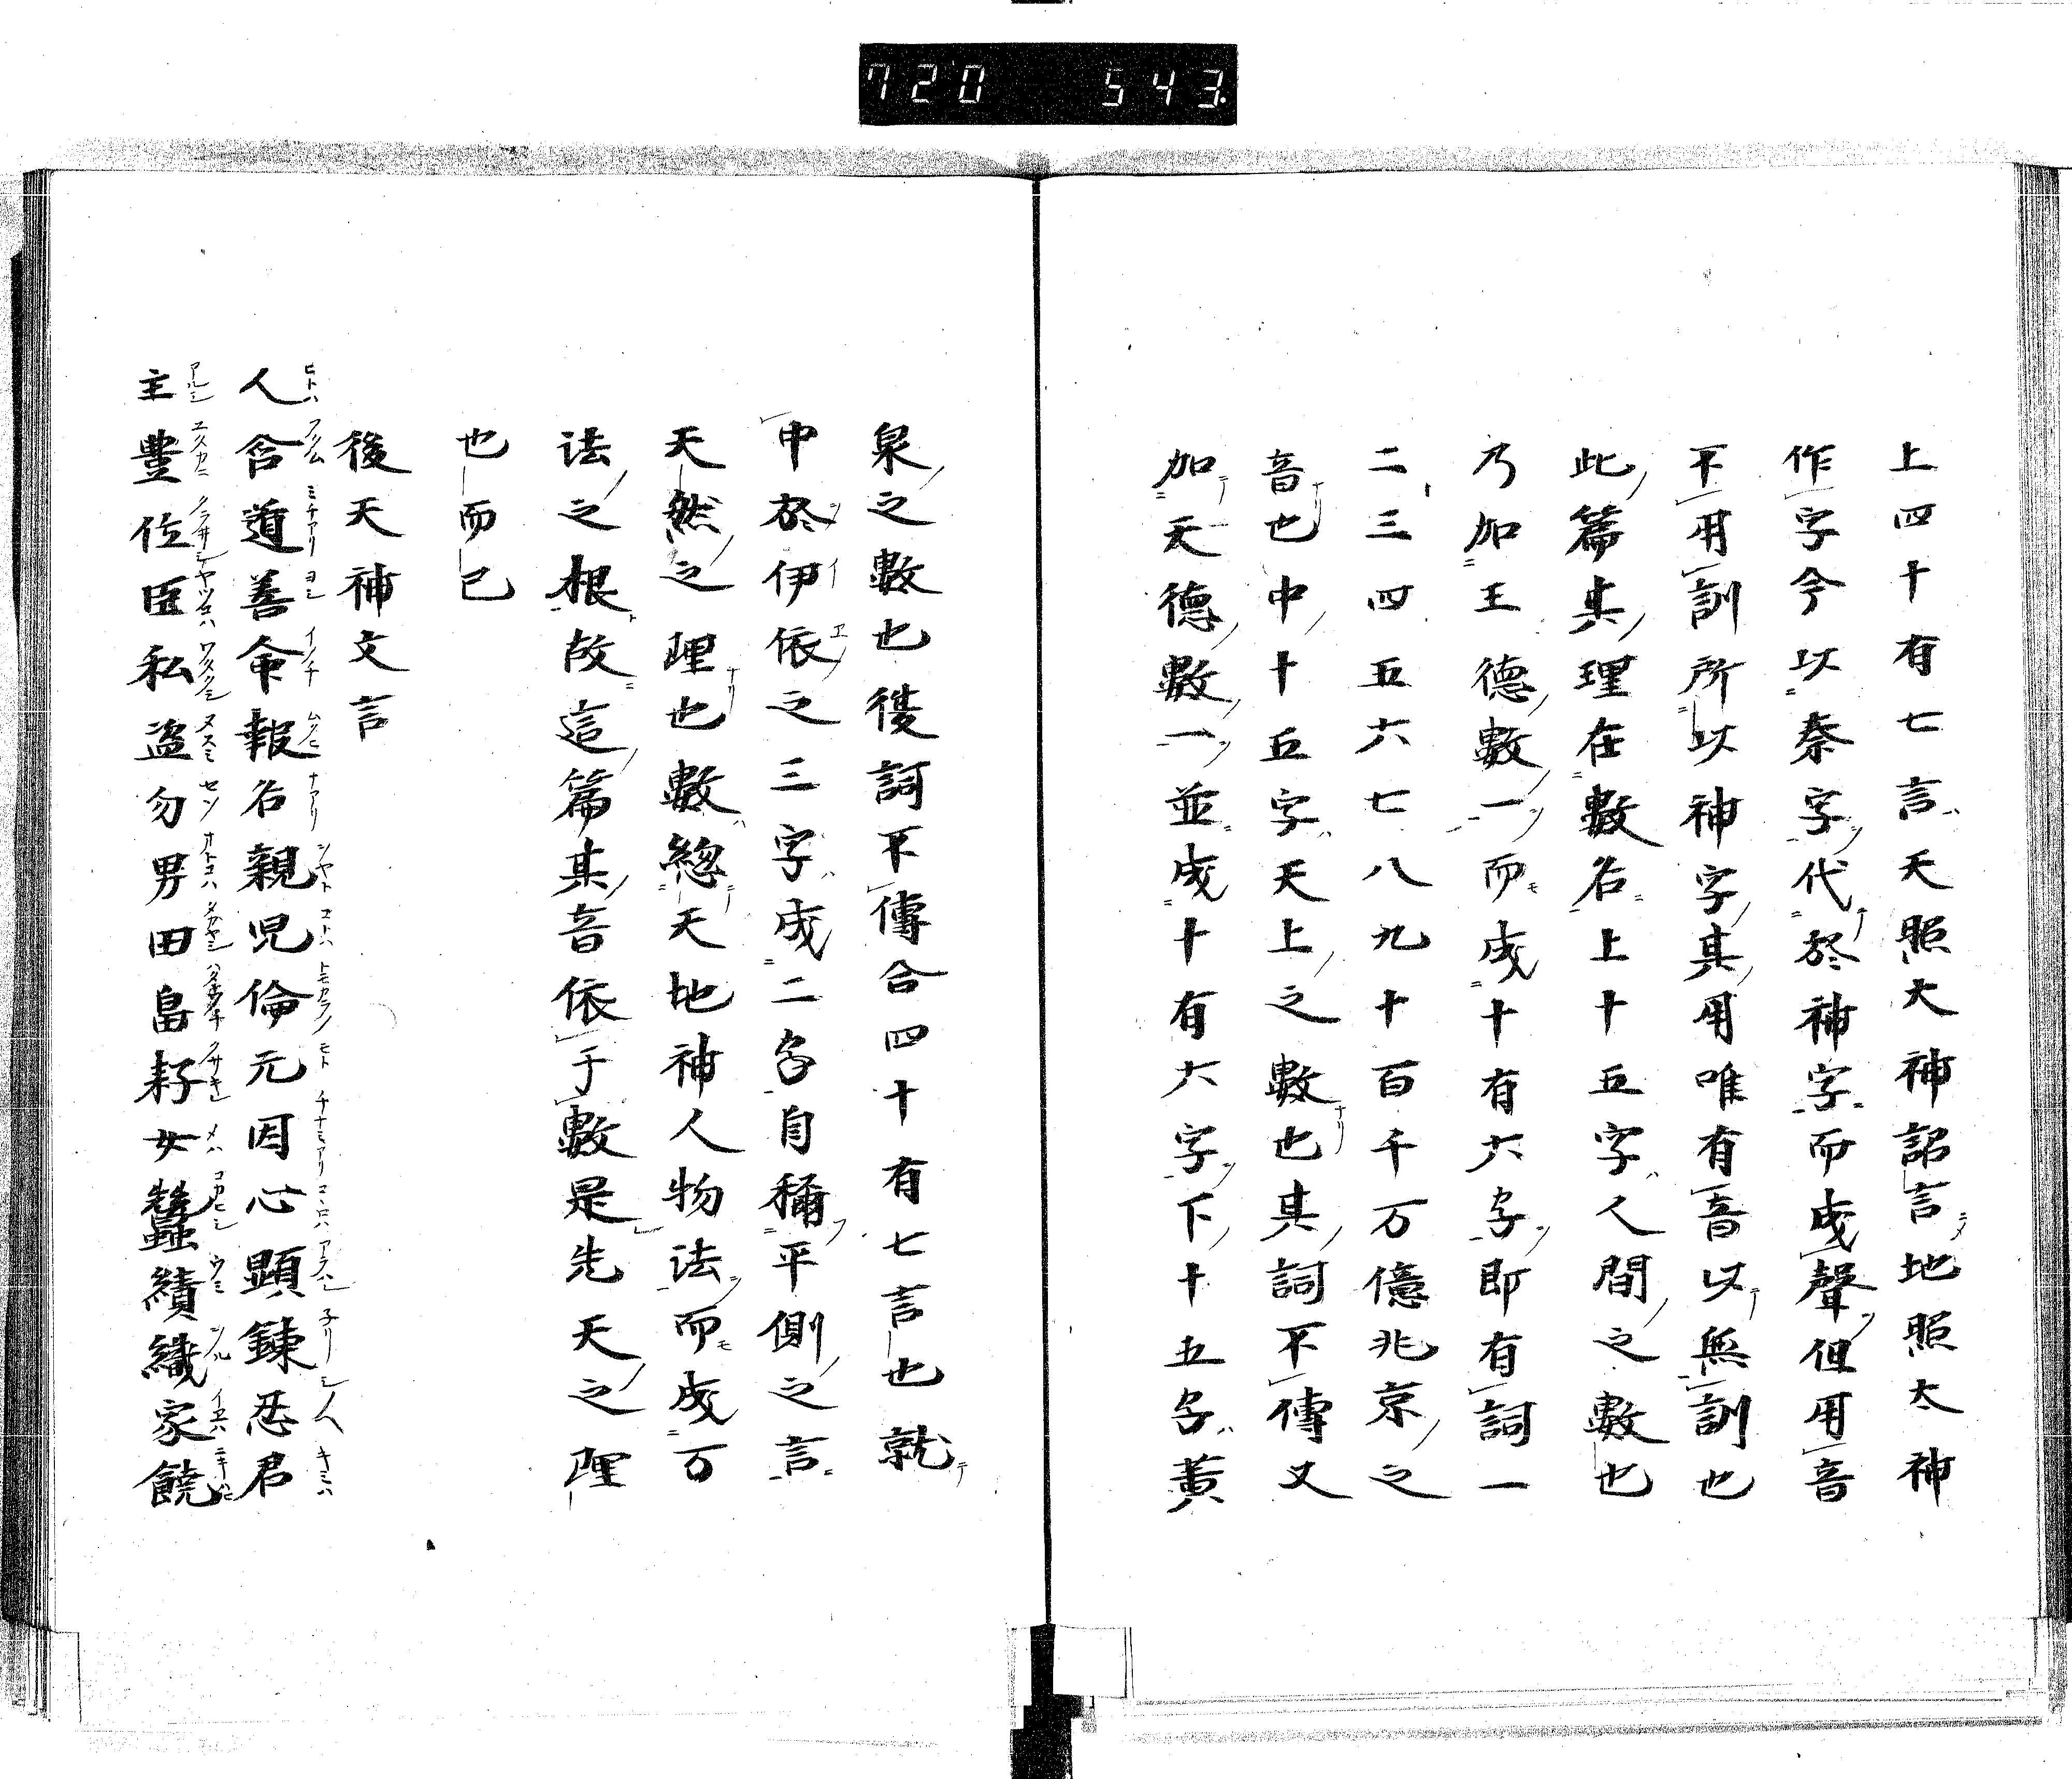 720 543.
上四十有七言天照大神詔言地照太神
作字今以秦字代於神字而成聲但用音
不用訓所以神字其用唯有音以無訓也
此篇其理在數名上十五字人間之數也
乃加王德數一而成十有六字即有詞一
二三四五六七八九十百千万億兆京之
音也中十五字天上之數也其詞不傳又
加天德數一並成十有六字下十五字黄
泉之數也後詞不傳合四十有七言也就
中於伊依之三字成二字自稱平側之言
天然之理也數總天地神人物法而成万
法之根故這篇其音依于數是先天之理
也而已
後天神文言
人含道善命報名親児倫元因心顕錬忍君
主豊位臣私盗勿男田畠耔女蠶績織家饒